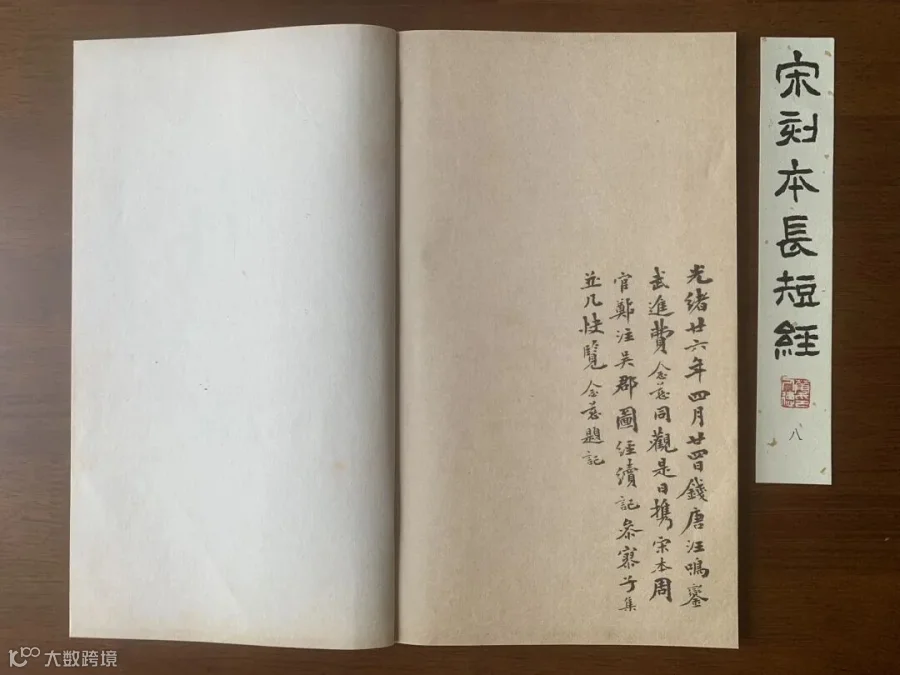 宋刻本長短經
八
光緒廿六年四月廿四日錢唐汪鳴鑾
武進費念慈同觀是日攜宋本周
官鄭注吳郡圖經續記參寥子集
並几快覽念慈題記
大数跨境